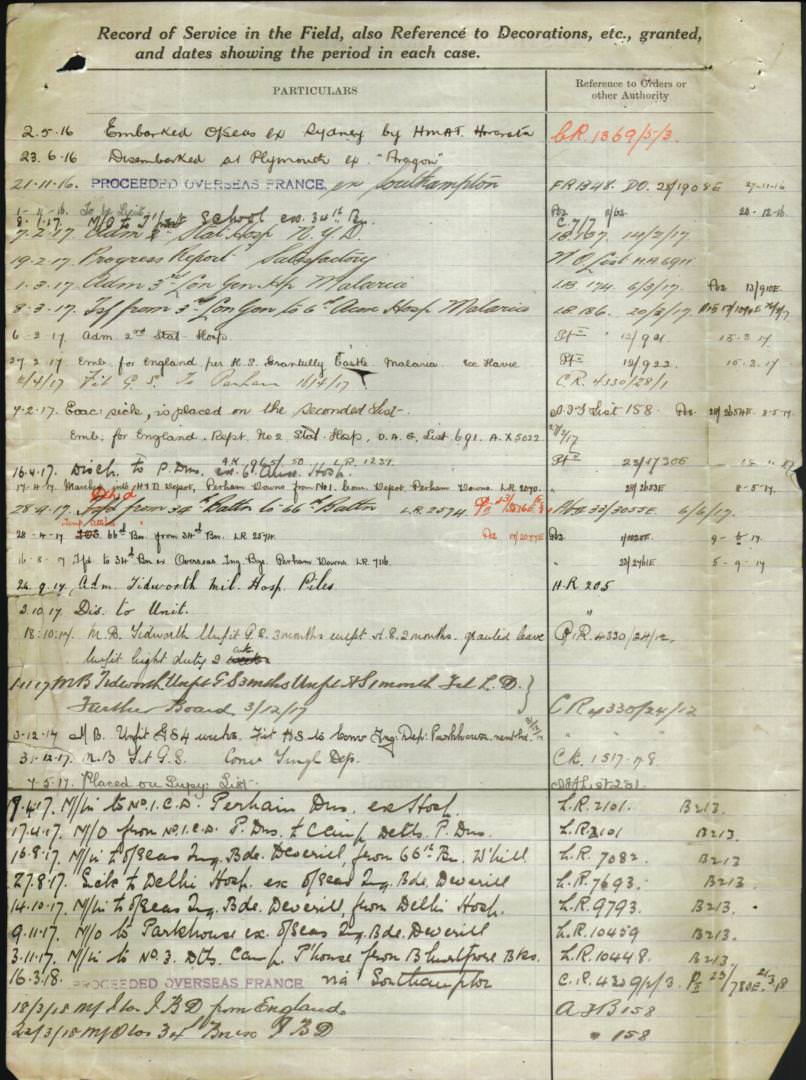 Record of Service in the Field, also Reference to Decorations, etc., granted,
and dates showing the period in each case.
PARTICULARS Reference to Orders or
other Authority
2.5.16 Embarked O/seas ex Sydney by HMAT. C.R. 1369/5/3.
23.6.16 Disembarked at Plymouth ex "Aragon"
21.11.16. PROCEEDED OVERSEAS FRANCE, ex Southampton FR 1348. DO. 28/1908E 27-11-16
8.1.17. M/O to School ex. 34th Bn. C.7/7 24-12-16
7.2.17. Adm Stat. Hosp N.Y.D.
19.2.17. Progress Report Satisfactory
1.3.17 Adm 3rd Lon Gen Hp Malaria LB 174. 6/3/17.
8.3.17. Tsf from 3rd Lon Gen to 6th Hosp Malaria LB 186. 20/3/17
6-2-17 Adm. 2nd Stat. Hosp 12/921 15.3.17
27.2.17 Emb. for England per H.S. Grantully Castle Malaria ex Havre 12/922 15.3.17
Fit G.S. To Perham 16/4/17 C.R. 4330/28/1
7.2.17. Evac sick, is placed on the Seconded List List 158 8-5-17
Emb. for England. Rept. No 2 Stat. Hosp, D.A.G. List 691. A.X 5022
16.4.17. Disch. to P. Dns. ex. 6th Hosp. L.R. 1239. 23/1730E
17.4.17. Marched into Depot, Perham Downs from No1. Com. Depot, Perham Downs LR 2070. 28/2053E 8-5-17.
28.4.17. Tsfd from 34th Battn to 66th Battn LR 2574 33/3055E 6/6/17
28-4-17 66th Bn. from 34th Bn. LR 2574
16-8-17 Tfd. to 34th Bn ex Overseas Tng Bge. Perham Downs. LR. 22/2761E 5-9-17
24.9.17, Adm. Tidworth Mil. Hosp. Piles H.R 205
3.10.17. Dis. to Unit. "
18.10.17. M.B. Tidworth Unfit G.S. 3 months unfit H.S. 2 months. granted leave C.R. 4330/24/12.
unfit light duty 2
1.11.17 M B Tidworth. Unfit G S 3 mths Unfit H S 1 month Fit L.D.
Further Board 3/12/17 C R 4330/24/12
3-12-17 M B. Unfit G S 4 weeks. Fit H.S to Conv Tng. Dep: Parkhouse " "
31.12.17. M.B Fit G.S. Conv Tng Dep. C.R. 1517-78
7-5-17. Placed on Supy: List- List 231.
17.4.17. M/in to No.1.C.D. Perham Dns. ex Hosp. L.R. 2101. B213.
17.4.17. M/O from No.1.C.D. P. Dns. to Camp Detls. P. Dns. L.R. 2101 B213.
16.8.17. M/in to O/seas Tng. Bde. Deverill, from 66th Bn. W'hill L.R. 7082. B213
27.8.17. Sick to Delhi Hosp. ex O/seas Tng. Bde. Deverill L.R. 7693. B213.
14.10.17. M/in to O/seas Tng. Bde. Deverill, from Delhi Hosp. L.R. 9793. B213.
9.11.17. M/O to Parkhouse ex. O/seas Tng. Bde. Deverill L.R. 10459 B213.
3.11.17. M/in to No 3. Camp P'house from Bks. L.R. 10448. B213.
16.3.18. PROCEEDED OVERSEAS FRANCE via Southampton C.R. 4309/2/3
18/3/18 M/I to I B D from England A & B 158
22/3/18 M/O to 34 Bn ex I B D " 158